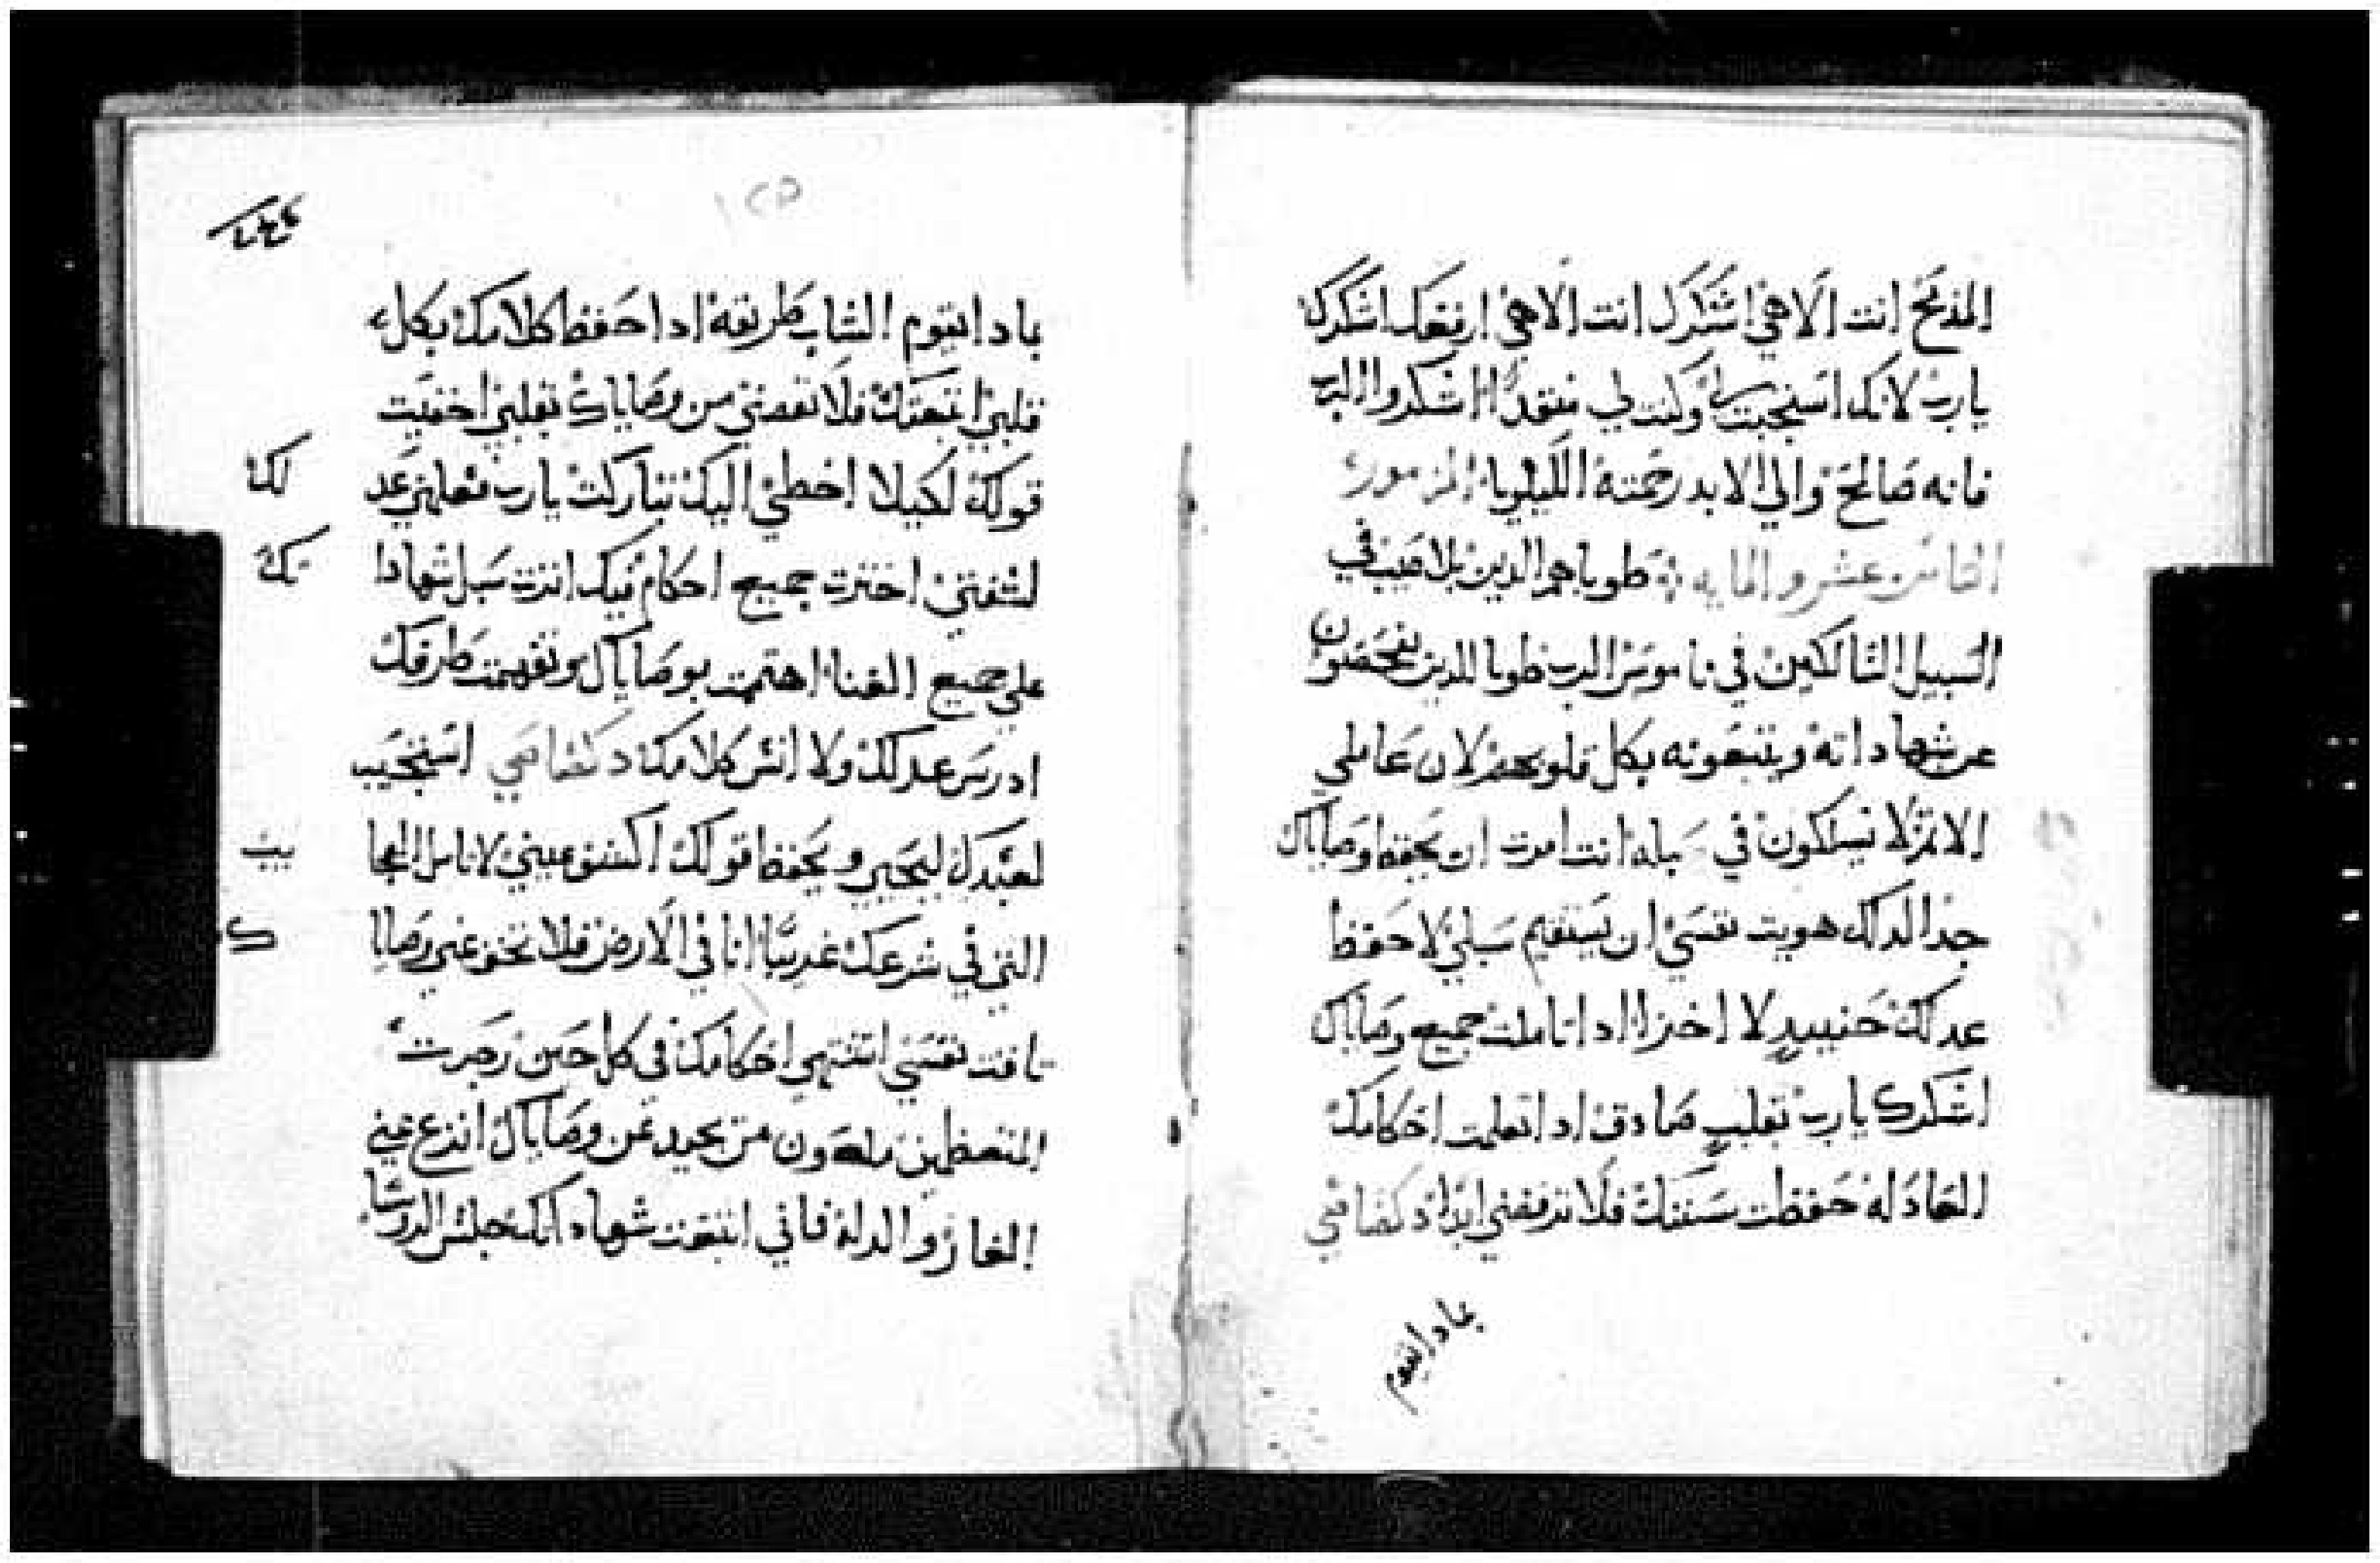 المذبح انت الاهي اشكرك انت الاهي ارفعك اشكرك
يارب لانك استجبت لي وكنت لي منقدًا اشكروا الرب
فانه صالح والي الابد رحمته الليلويا المزمور
الثامن عشر والمايه طوباهم الدين بلا عيب في
السبيل السالكين في ناموس الرب طوبا للدين يفحصون
عن شهاداته ويتبعونه بكل قلوبهم لان عاملي
الاتم لا يسلكون في سبله انت امرت ان يحفظوا وصاياك
جدا لدلك هويت نفسي ان يستقيم سبلي لاحفظ
عدلك حنييدٍ لا اخزا ادا تاملت جميع وصاياك
اشكرك يارب بقلبٍ صادق ادا تعلمت احكامك
العادله حفظت سننك فلا ترفضني ابدًا د كفا فتي
بمادا يقوم
١٢٥
بمادا يقوم الشاب طريقه ادا حفظ كلامك بكل
قلبي اتبعتك فلا تقصني من وصاياك بقلبي اخفيت
قولك لكيلا اخطي اليك تباركت يارب فعلمني عد
لك
لشفتي اخترت جميع احكام فيك انزت سبل شهادا
تك
علي جميع الغنا اهتميت بوصاياك وتفهمت طرقك
ادرس عدلك ولا انس كلامك د كفا فتي استجيب
لعبدك ليحيي ويحفظ قولك اكشف عيني لاتامل العجا
يب
التي في شرعك غريبًا انا في الارض فلا تخف عني وصايا
ك
تاقت نفسي اتشتهي احكامك في كل حين زجرت
المتعظمين ملعون من يحيد عن وصاياك انزع عني
العار والدله فاني اتبعت شهاداتك جلس الروسا